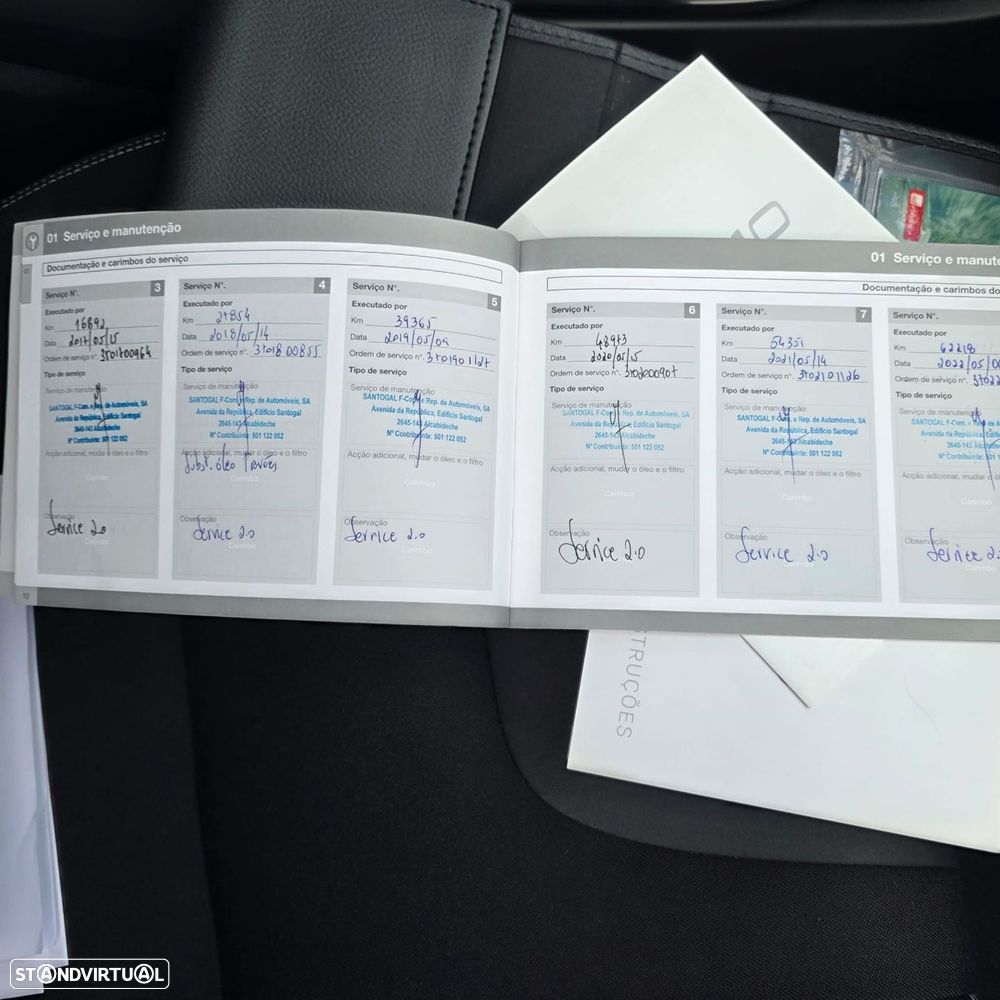 01 Serviço e manutenção
Documentação e carimbos do serviço
Serviço N°. 3
Executado por
Km 16692
Data 2017/05/15
Ordem de serviço n°. 3T01700964
Tipo de serviço
Serviço de manutenção
SANTOGAL F-Com. e Rep. de Automóveis, SA
Avenida da República, Edifício Santogal
2645-143 Alcabideche
Nº Contribuinte: 501 122 052
Acção adicional, mudar o óleo e o filtro
Carimbo
Observação
Service 2.0
Carimbo
Serviço N°. 4
Executado por
Km 27854
Data 2018/05/14
Ordem de serviço n°. 3T01800855
Tipo de serviço
Serviço de manutenção
SANTOGAL F-Com. e Rep. de Automóveis, SA
Avenida da República, Edifício Santogal
2645-143 Alcabideche
Nº Contribuinte: 501 122 052
Acção adicional, mudar o óleo e o filtro
Subst. óleo Travões
Carimbo
Observação
Service 2.0
Carimbo
Serviço N°. 5
Executado por
Km 39365
Data 2019/05/09
Ordem de serviço n°. 3T01901127
Tipo de serviço
Serviço de manutenção
SANTOGAL F-Com. e Rep. de Automóveis, SA
Avenida da República, Edifício Santogal
2645-143 Alcabideche
Nº Contribuinte: 501 122 052
Acção adicional, mudar o óleo e o filtro
Carimbo
Observação
Service 2.0
Carimbo
10
01 Serviço e manute
Documentação e carimbos do
Serviço N°. 6
Executado por
Km 48973
Data 2020/05/15
Ordem de serviço n°. 3T02000907
Tipo de serviço
Serviço de manutenção
SANTOGAL F-Com. e Rep. de Automóveis, SA
Avenida da República, Edifício Santogal
2645-143 Alcabideche
Nº Contribuinte: 501 122 052
Acção adicional, mudar o óleo e o filtro
Carimbo
Observação
Service 2.0
Carimbo
Serviço N°. 7
Executado por
Km 54351
Data 2021/05/14
Ordem de serviço n°. 3T02101126
Tipo de serviço
Serviço de manutenção
SANTOGAL F-Com. e Rep. de Automóveis, SA
Avenida da República, Edifício Santogal
2645-143 Alcabideche
Nº Contribuinte: 501 122 052
Acção adicional, mudar o óleo e o filtro
Carimbo
Observação
Service 2.0
Carimbo
Serviço N°.
Executado por
Km 62218
Data 2022/05/0
Ordem de serviço n°. 3T022
Tipo de serviço
Serviço de manutenção
SANTOGAL F-Com. e Re
Avenida da República, Edif
2645-143 Alcabide
Nº Contribuinte: 501
Acção adicional, mudar o
Carimbo
Observação
Service 2.
Carimbo
STRUÇÕES
STANDVIRTUAL